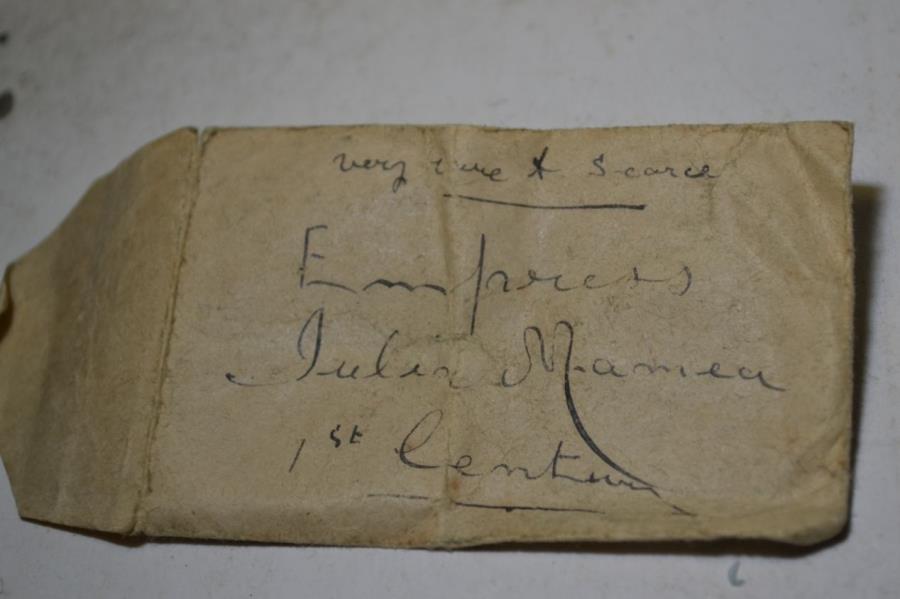 very rare & Scarce
Empress
Julia Mamea
1st Century